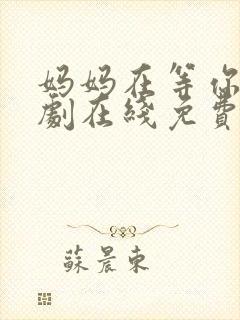 妈妈在等你
劇在綫免費
蘇晨東